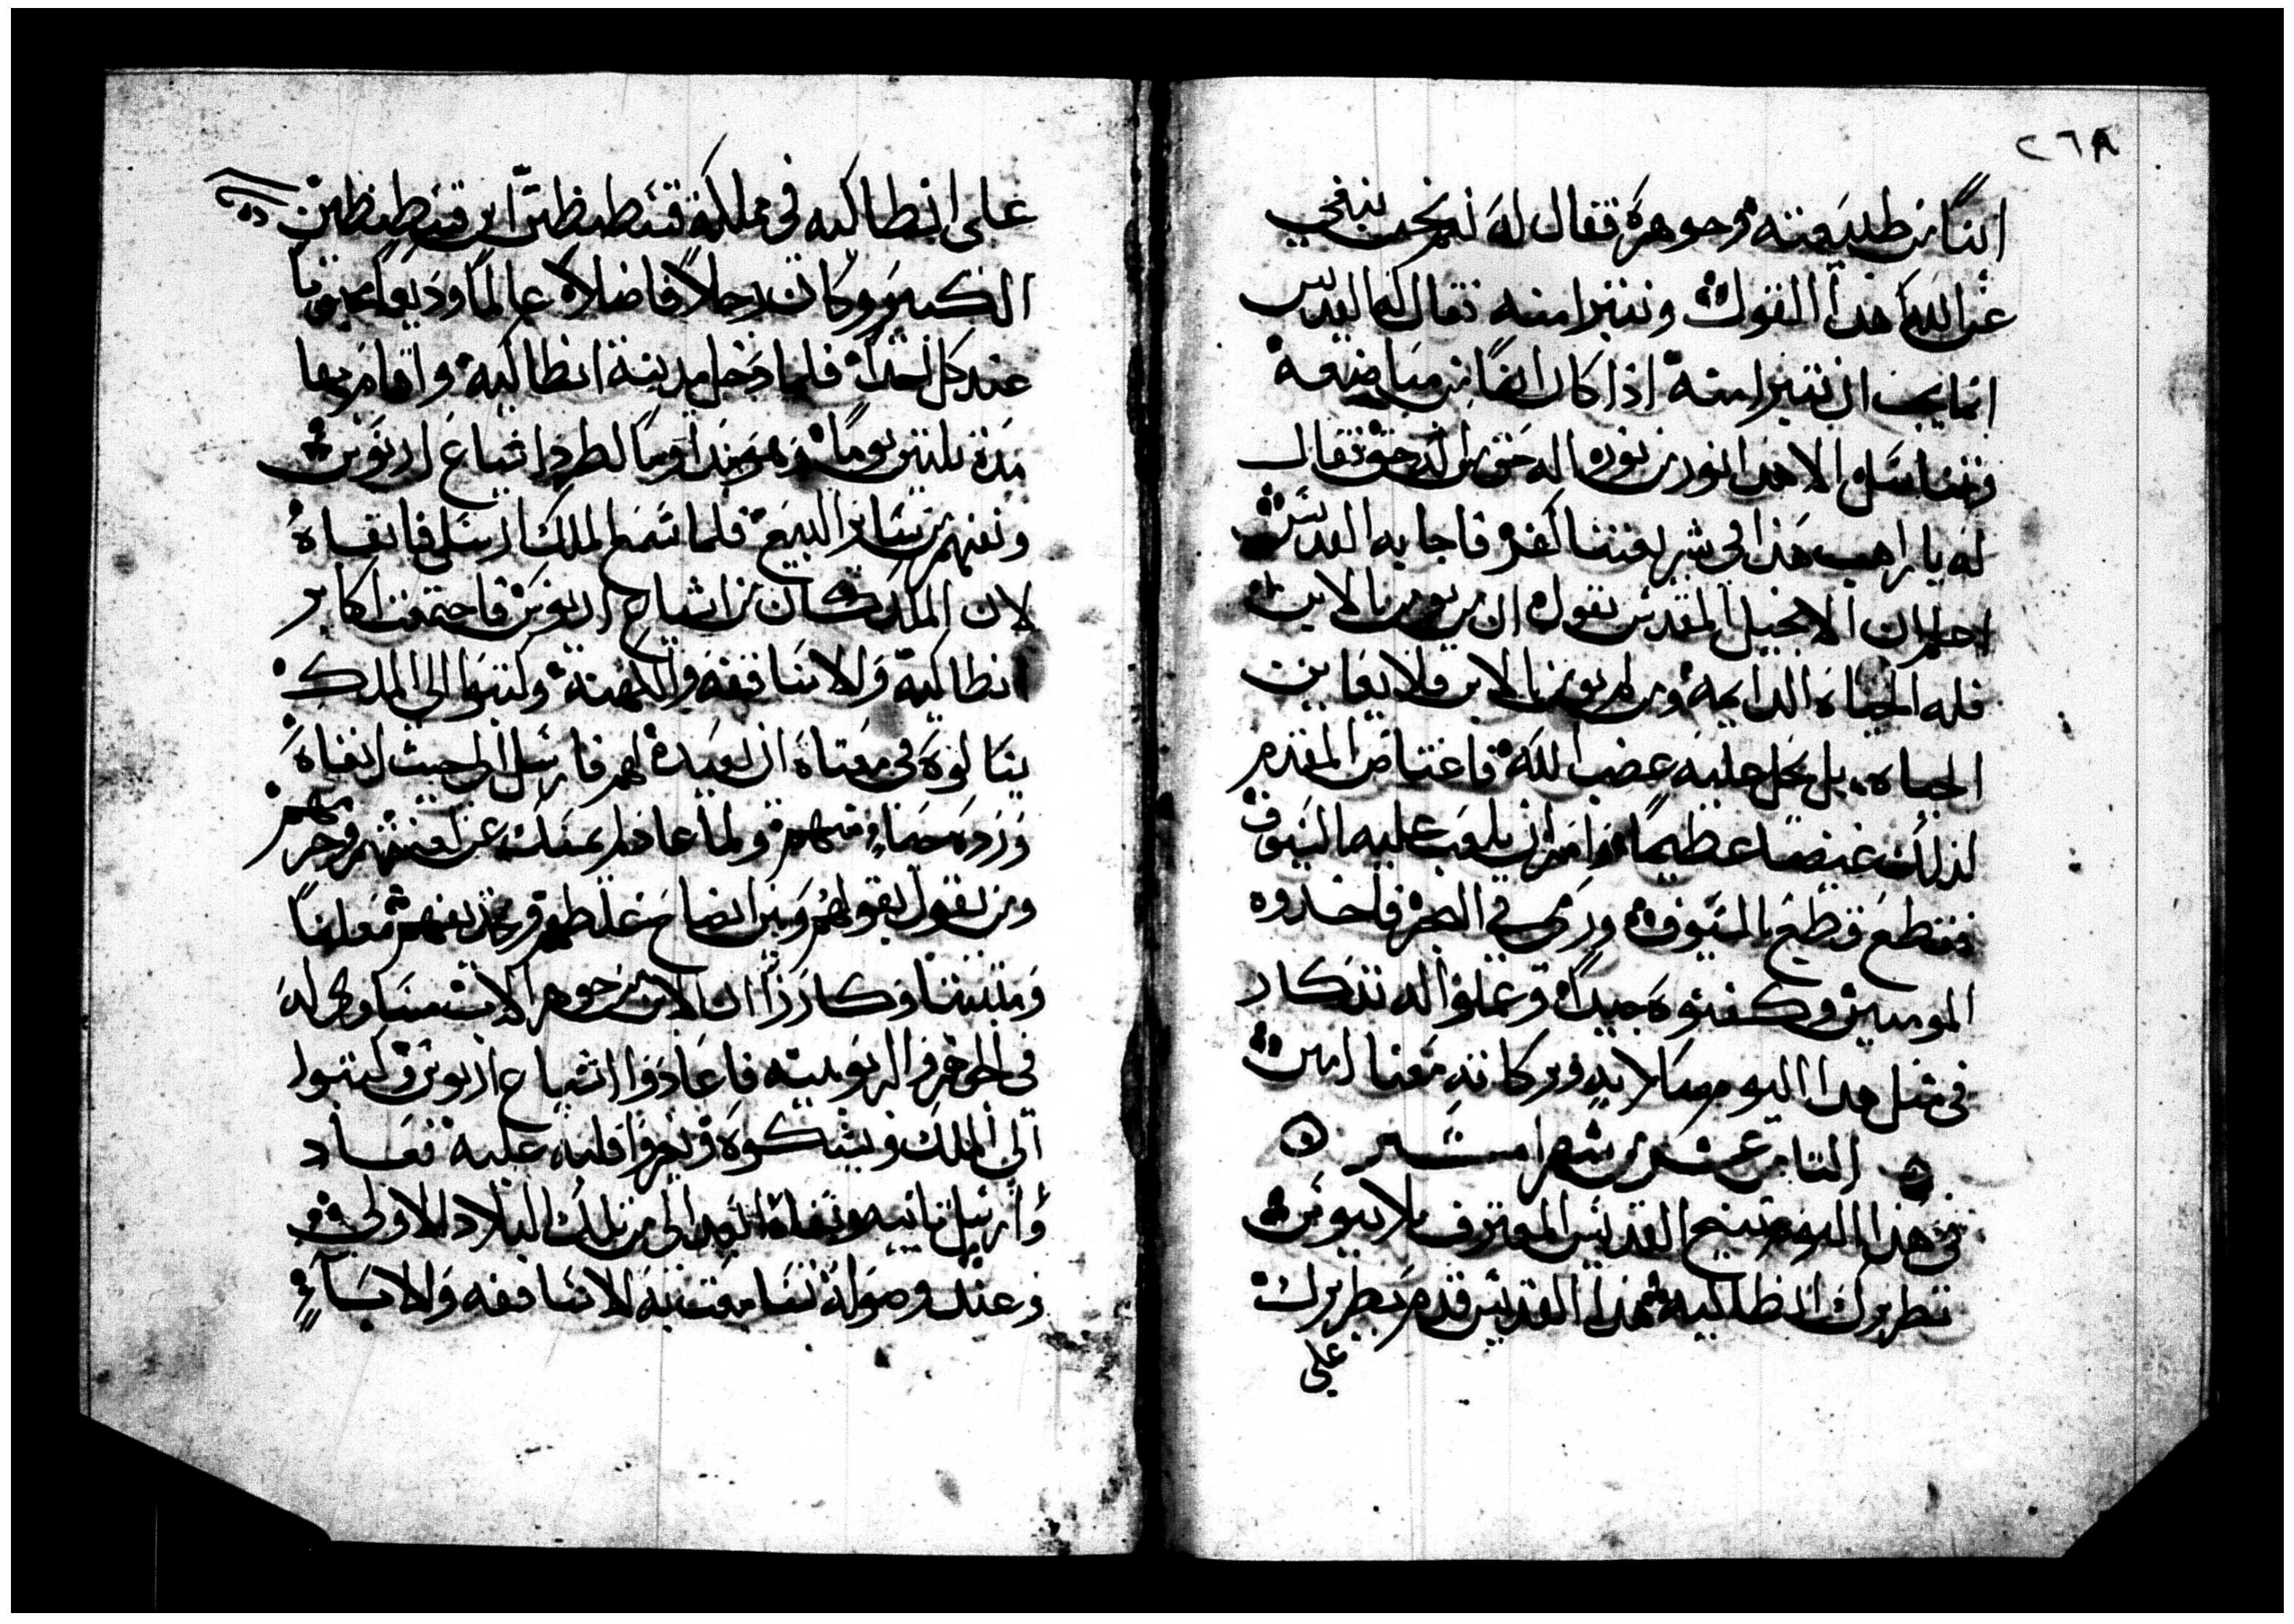 ٢٦٨
ابنًا من طبيعته وجوهره فقال له نعم نحن ننفي
عن الله هذا القول ونتبرا منه فقال له القديس
انما يجب ان نتبرا منه اذا كان ابنًا من مباضعة
وتناسل الا هذا نور من نور اله حق من اله حق فقال
له يا راهب هذا في شريعتنا كفر فاجابه القديس
اعلم ان الانجيل المقدس يقول ان من يومن بالابن
فله الحياه الدايمه ومن لم يومن بالابن فلا يعاين
الحياه بل يحل عليه غضب الله فاغتاض المقدم
لذلك غيضا عظيمًا وامر ان يلعب عليه السيوف
فقطع قطع بالسيوف ورمي في البحر فاخدوه
المومنين وكفنوه جيدًا وعملوا له تذكار
في مثل هدا اليوم صلاته وبركاته معنا امين
الثامن عشر من شهر امشير
في هذا اليوم تنيح القديس المعترف ملاتيوس
بطريرك انطاكيه هذا القديس قدم بطريرك
علي
على انطاكيه في مملكة قسطنطين ابن قسطنطين
الكبير وكان رجلاً فاضلاً عالمًا وديعًا محبوبا
عند كل احد فلما دخل مدينة انطاكية واقام بها
مدة تلتين يومًا وهو مداومًا لطرد اشياع اريوس
ونفيهم من ساير البيع فلما سمع الملك ارسل فانفاه
لان الملك كان من اشياع اريوس فاجتمعت اكابر
انطاكية والاساقفه والكهنة وكتبوا الى الملك
يسالوه في معناه ان يعيده لهم فارسل الى حيث انفاه
ورده حياءً منهم ولما عاد لم يمسك عن لعنتهم وحرمهم
ومن يقول بقولهم وبين ايضاح غلطهم وتجديفهم معلنًا
ومثبتا وكارزًا ان الابن من جوهر الاب مساوي له
في الجوهر والربوبيه فاعادوا اشياع اريوس وكتبوا
الى الملك ويشكوه ويحرفوا قلبه عليه فعاد
وارسل تانيه ونفاه الى ابعد من تلك البلاد الاولى
وعند وصوله تسامعت به الاساقفه والابـاء